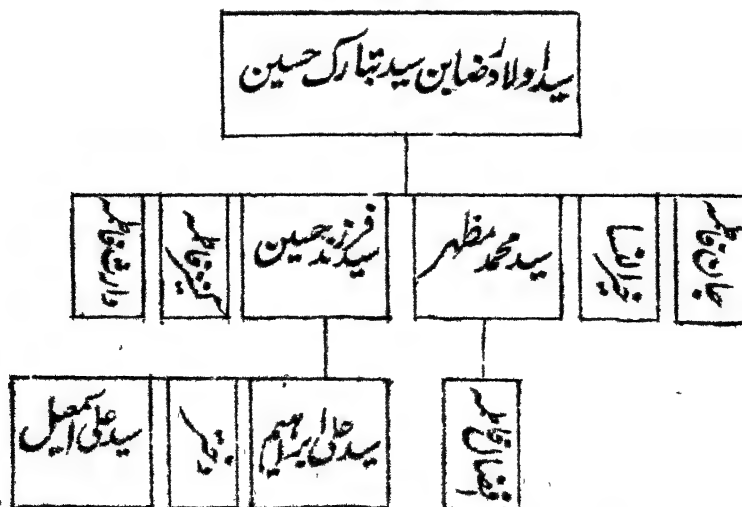 سید اولاد رضا بن سید تبارک حسین
جان فاطمہ
خیرالنسا
سید محمد مظہر
سید فرزند حسین
کنیز فاطمہ
وارث فاطمہ
افضال فاطمہ
سید علی ابراہیم
دختر
سید علی اسمعیل